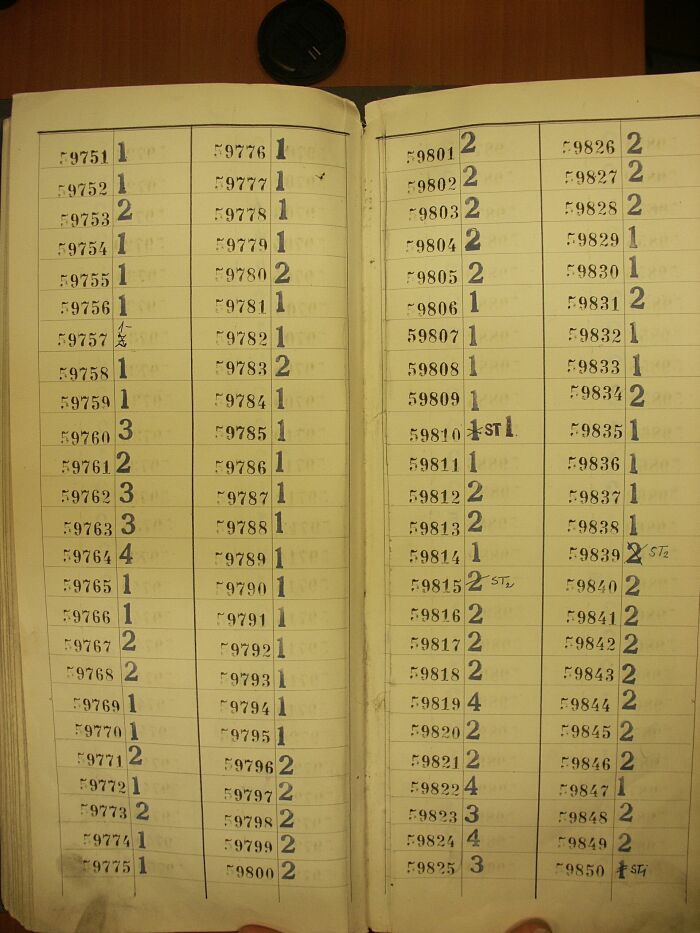 59751 1
59752 1
59753 2
59754 1
59755 1
59756 1
59757 1-
59758 1
59759 1
59760 3
59761 2
59762 3
59763 3
59764 4
59765 1
59766 1
59767 2
59768 2
59769 1
59770 1
59771 2
59772 1
59773 2
59774 1
59775 1
59776 1
59777 1
59778 1
59779 1
59780 2
59781 1
59782 1
59783 2
59784 1
59785 1
59786 1
59787 1
59788 1
59789 1
59790 1
59791 1
59792 1
59793 1
59794 1
59795 1
59796 2
59797 2
59798 2
59799 2
59800 2
59801 2
59802 2
59803 2
59804 2
59805 2
59806 1
59807 1
59808 1
59809 1
59810 1 ST 1
59811 1
59812 2
59813 2
59814 1
59815 2 ST2
59816 2
59817 2
59818 2
59819 4
59820 2
59821 2
59822 4
59823 3
59824 4
59825 3
59826 2
59827 2
59828 2
59829 1
59830 1
59831 2
59832 1
59833 1
59834 2
59835 1
59836 1
59837 1
59838 1
59839 2 ST2
59840 2
59841 2
59842 2
59843 2
59844 2
59845 2
59846 2
59847 1
59848 2
59849 2
59850 1 ST1